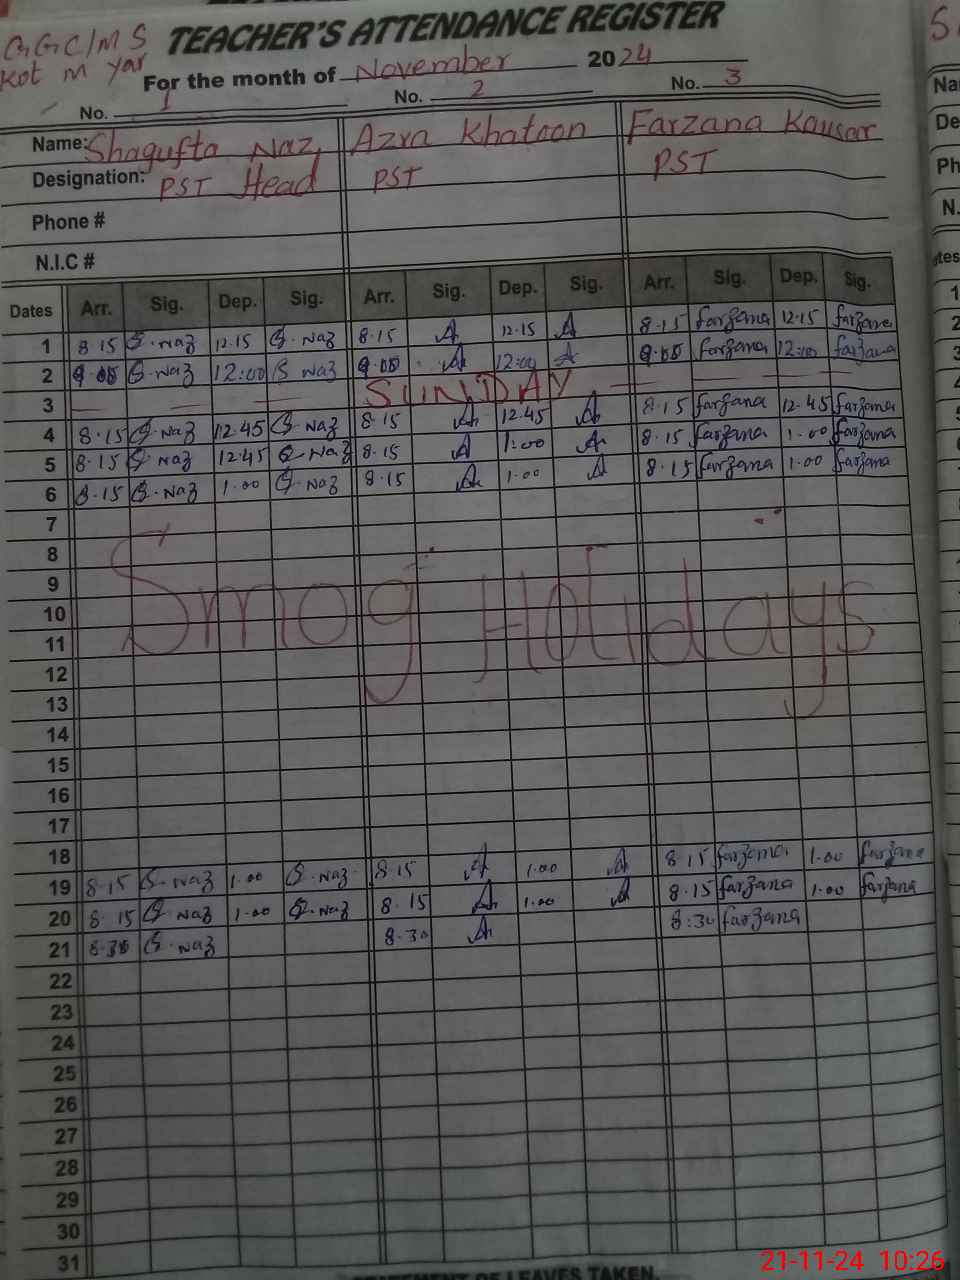 GGC/MS TEACHER'S ATTENDANCE REGISTER
Kot M Yar For the month of November 2024
No. 1 No. 2 No. 3
Name: Shagufta Naz Azra Khatoon Farzana Kausar
Designation: PST Head PST PST
Phone #
N.I.C #
Dates Arr. Sig. Dep. Sig. Arr. Sig. Dep. Sig. Arr. Sig. Dep. Sig.
1 8.15 S.Naz 12.15 S.Naz 8.15 A 12.15 A 8.15 farzana 12.15 farzana
2 9.00 S.Naz 12:00 S Naz 9.00 A 12:00 A 9.00 farzana 12:00 farzana
3 SUNDAY
4 8.15 S.Naz 12.45 S.Naz 8.15 A 12.45 A 8.15 farzana 12.45 farzana
5 8.15 S.Naz 12.45 S.Naz 8.15 A 1.00 A 8.15 farzana 1.00 farzana
6 8.15 S.Naz 1.00 S.Naz 8.15 A 1.00 A 8.15 farzana 1.00 farzana
7
8
9
10 Smog Holidays
11
12
13
14
15
16
17
18
19 8.15 S.Naz 1.00 S.Naz 8.15 A 1.00 A 8.15 farzana 1.00 farzana
20 8.15 S.Naz 1.00 S.Naz 8.15 A 1.00 A 8.15 farzana 1.00 farzana
21 8.30 S.Naz 8.30 A 8:30 farzana
22
23
24
25
26
27
28
29
30
31
STATEMENT OF LEAVES TAKEN.
21-11-24 10:26